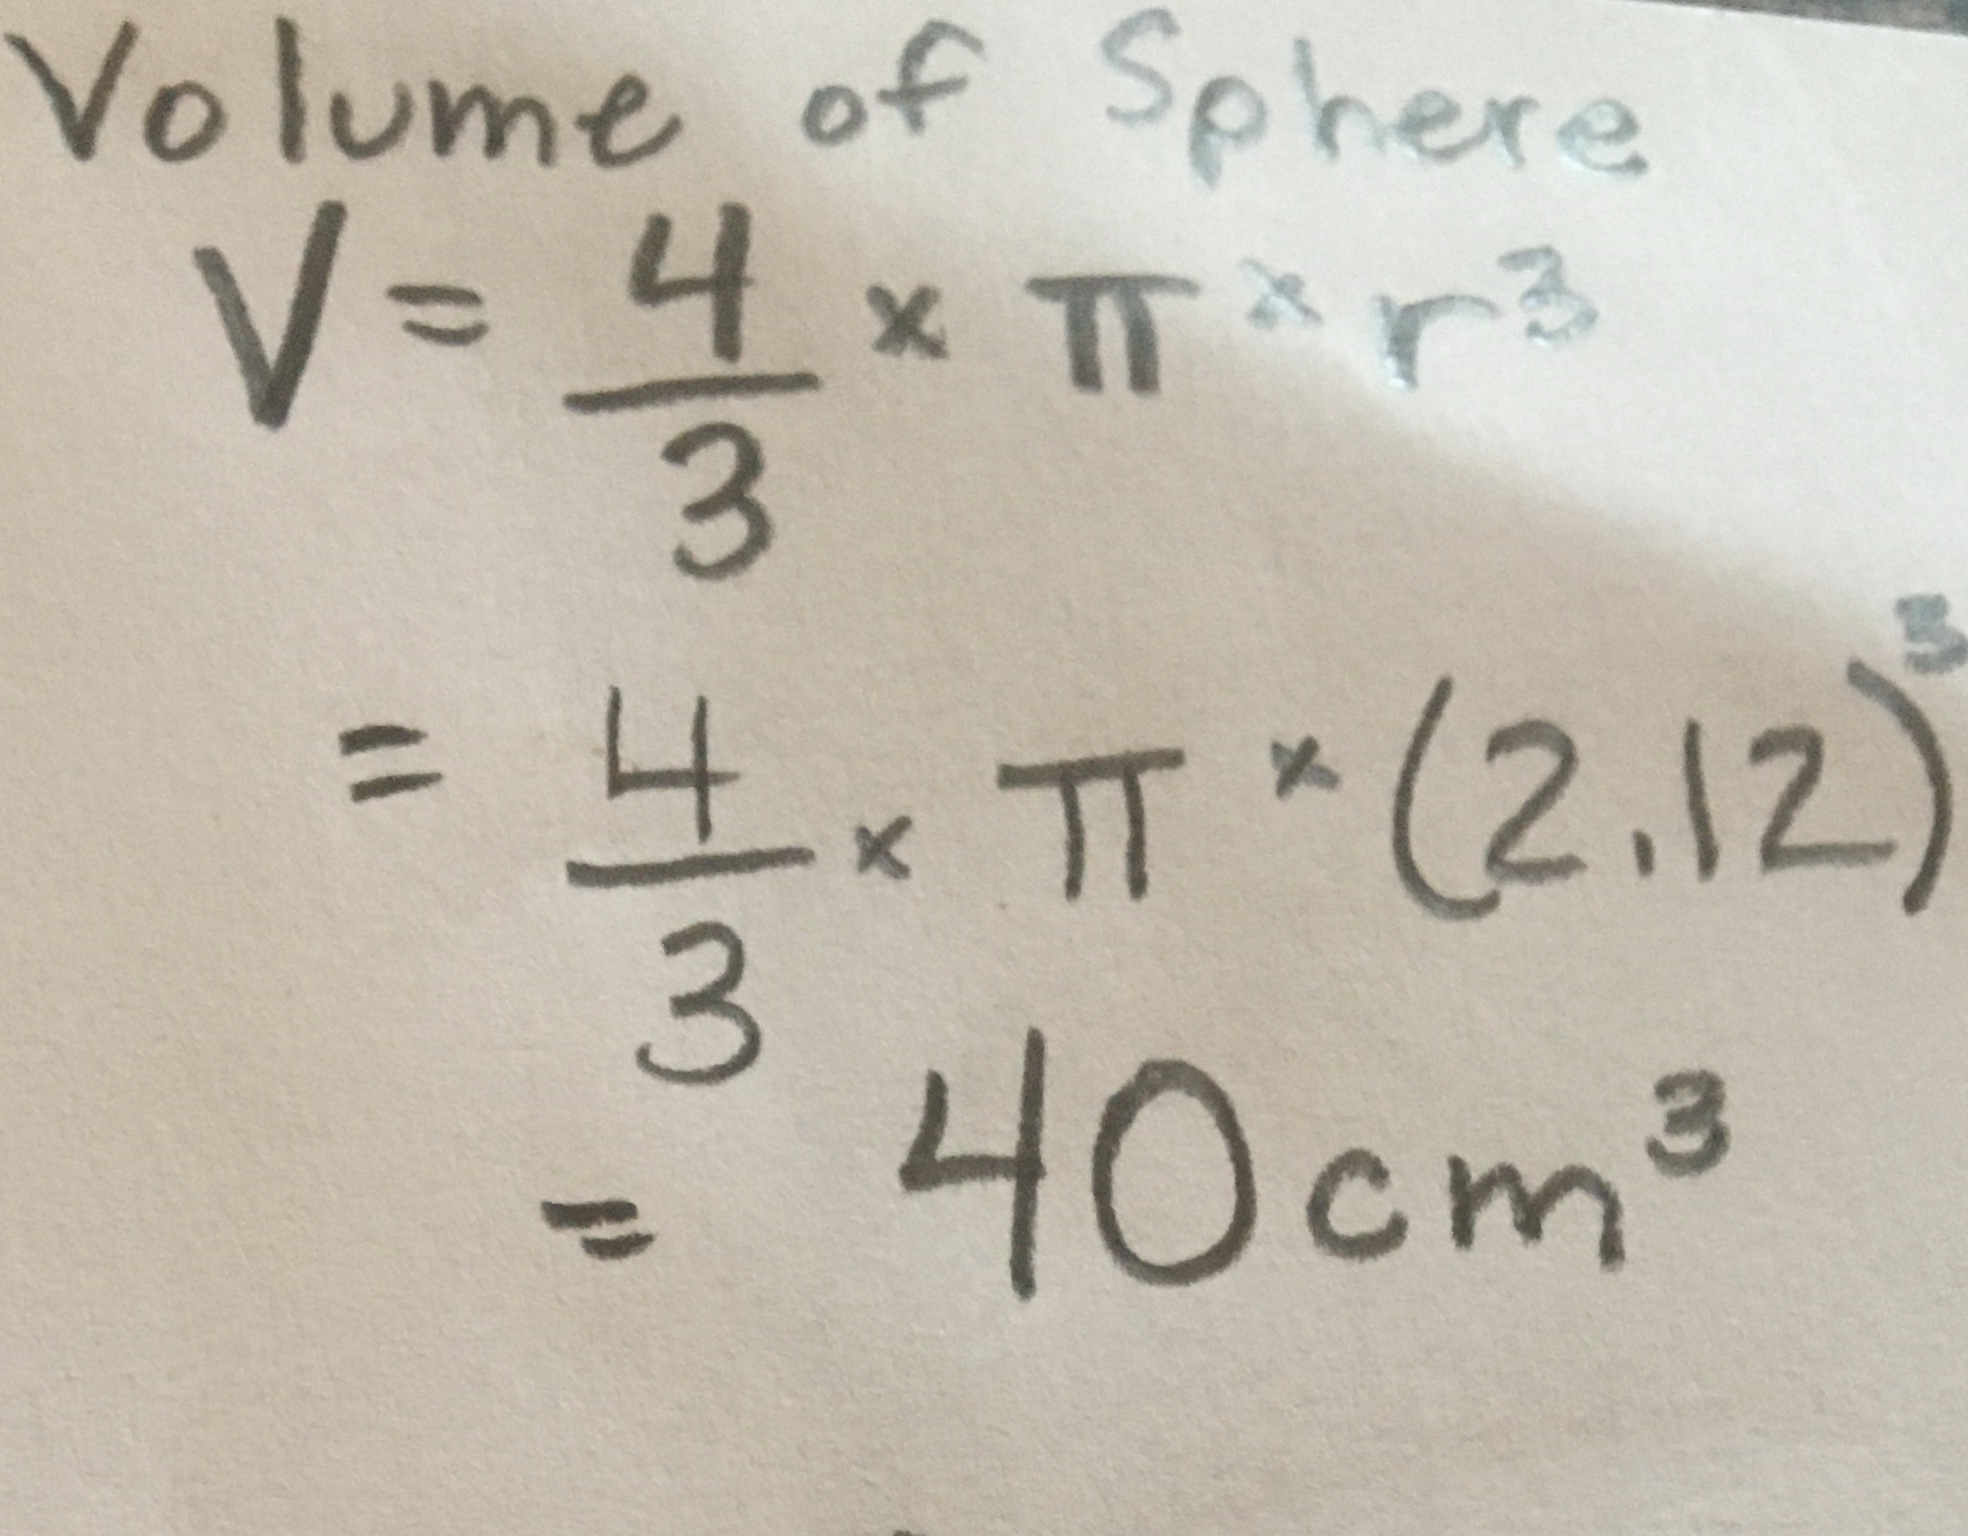 Volume of Sphere
V = 4/3 × π × r³
= 4/3 × π × (2.12)³
= 40cm³